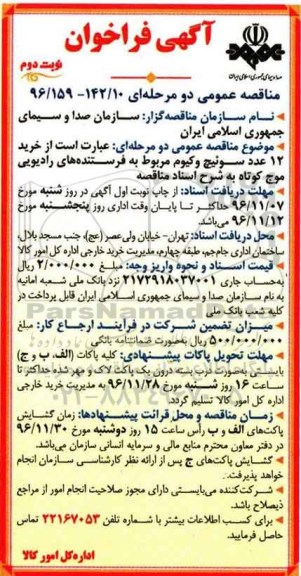 آگهی فراخوان
نوبت دوم
صدا و سیمای جمهوری اسلامی ایران
مناقصه عمومی دو مرحله‌ای ۱۴۲/۱۰- ۹۶/۱۵۹
نـام سـازمان مناقصه‌گزار: سازمان صدا و سیمای
جمهوری اسلامی ایران
موضوع مناقصه عمومی دو مرحله‌ای: عبارت است از خرید
۱۲ عدد سـوئیچ وکیوم مربوط به فرسـتنده‌های رادیویی
موج کوتاه به شرح اسناد مناقصه
مهلت دریافت اسناد: از چاپ نوبت اول آگهی در روز شنبه مورخ
۹۶/۱۱/۰۷ حداکثر تـا پایـان وقت اداری روز پنجشـنبه مورخ
۹۶/۱۱/۱۲ می‌باشد.
محل دریافت اسناد: تهران- خیابان ولی‌عصر (عج)، جنب مسجد بلال،
ساختمان اداری جام‌جم، طبقه چهارم، مدیریت خرید خارجی اداره کل امور کالا
قیمت اسـناد و نحوه واریز وجه: مبلـغ ۲/۰۰۰/۰۰۰ ریال
به‌حساب جاری ۲۱۷۲۹۱۸۰۳۷۰۰۱ نزد بانک ملی شعبه امانیه
به نام سازمان صدا و سیمای جمهوری اسلامی ایران قابل پرداخت در
کلیه شعب بانک ملی
میـزان تضمین شـرکت در فرآینـد ارجـاع کار: مبلغ
۵۰۰/۰۰۰/۰۰۰ ریال به‌صورت ضمانتنامه بانکی
مهلت تحویل پاکات پیشـنهادی: کلیه پاکات (الف، ب و ج)
بایستی به‌صورت درب بسته درون یک پاکت لاک و مهر شده حداکثر تا
ساعت ۱۶ روز شـنبه مورخ ۹۶/۱۱/۲۸ به مدیریت خرید خارجی
اداره کل امور کالا تسلیم گردد.
زمـان مناقصه و محل قرائت پیشـنهادها: زمان گشایش
پاکت‌های الف و ب رأس ساعت ۱۵ روز دوشنبه مورخ ۹۶/۱۱/۳۰
در دفتر معاون محترم منابع مالی و سرمایه انسانی سازمان می‌باشد.
گشـایش پاکت‌های ج پس از ارائه نظر کارشناسی سازمان انجام
خواهد پذیرفت.
شـرکت‌کننده می‌بایستی دارای مجوز صلاحیت انجام امور از مراجع
ذیصلاح باشد.
برای کسب اطلاعات بیشتر با شماره تلفن ۲۲۱۶۷۰۵۳ تماس
حاصل فرمایید.
اداره‌کل امور کالا